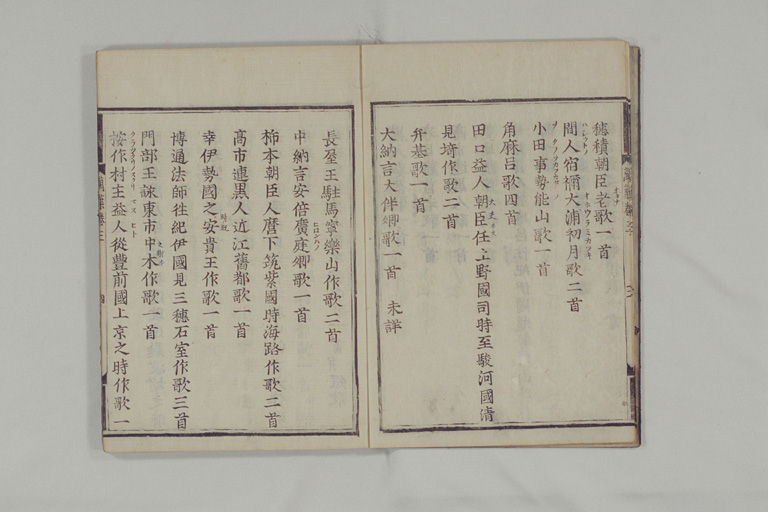 穂積朝臣老歌一首
間人宿禰大浦初月歌二首
小田事勢能山歌一首
角麻呂歌四首
田口益人朝臣任上野國司時至駿河國清
見埼作歌二首
弁基歌一首
大納言大伴卿歌一首 未詳
長屋王駐馬寧樂山作歌二首
中納言安倍廣庭卿歌一首
柿本朝臣人麿下筑紫國時海路作歌二首
高市連黒人近江舊都歌一首
幸伊勢國之安貴王作歌一首
博通法師往紀伊國見三穗石室作歌三首
門部王詠東市中木作歌一首
桉作村主益人從豐前國上京之時作歌一